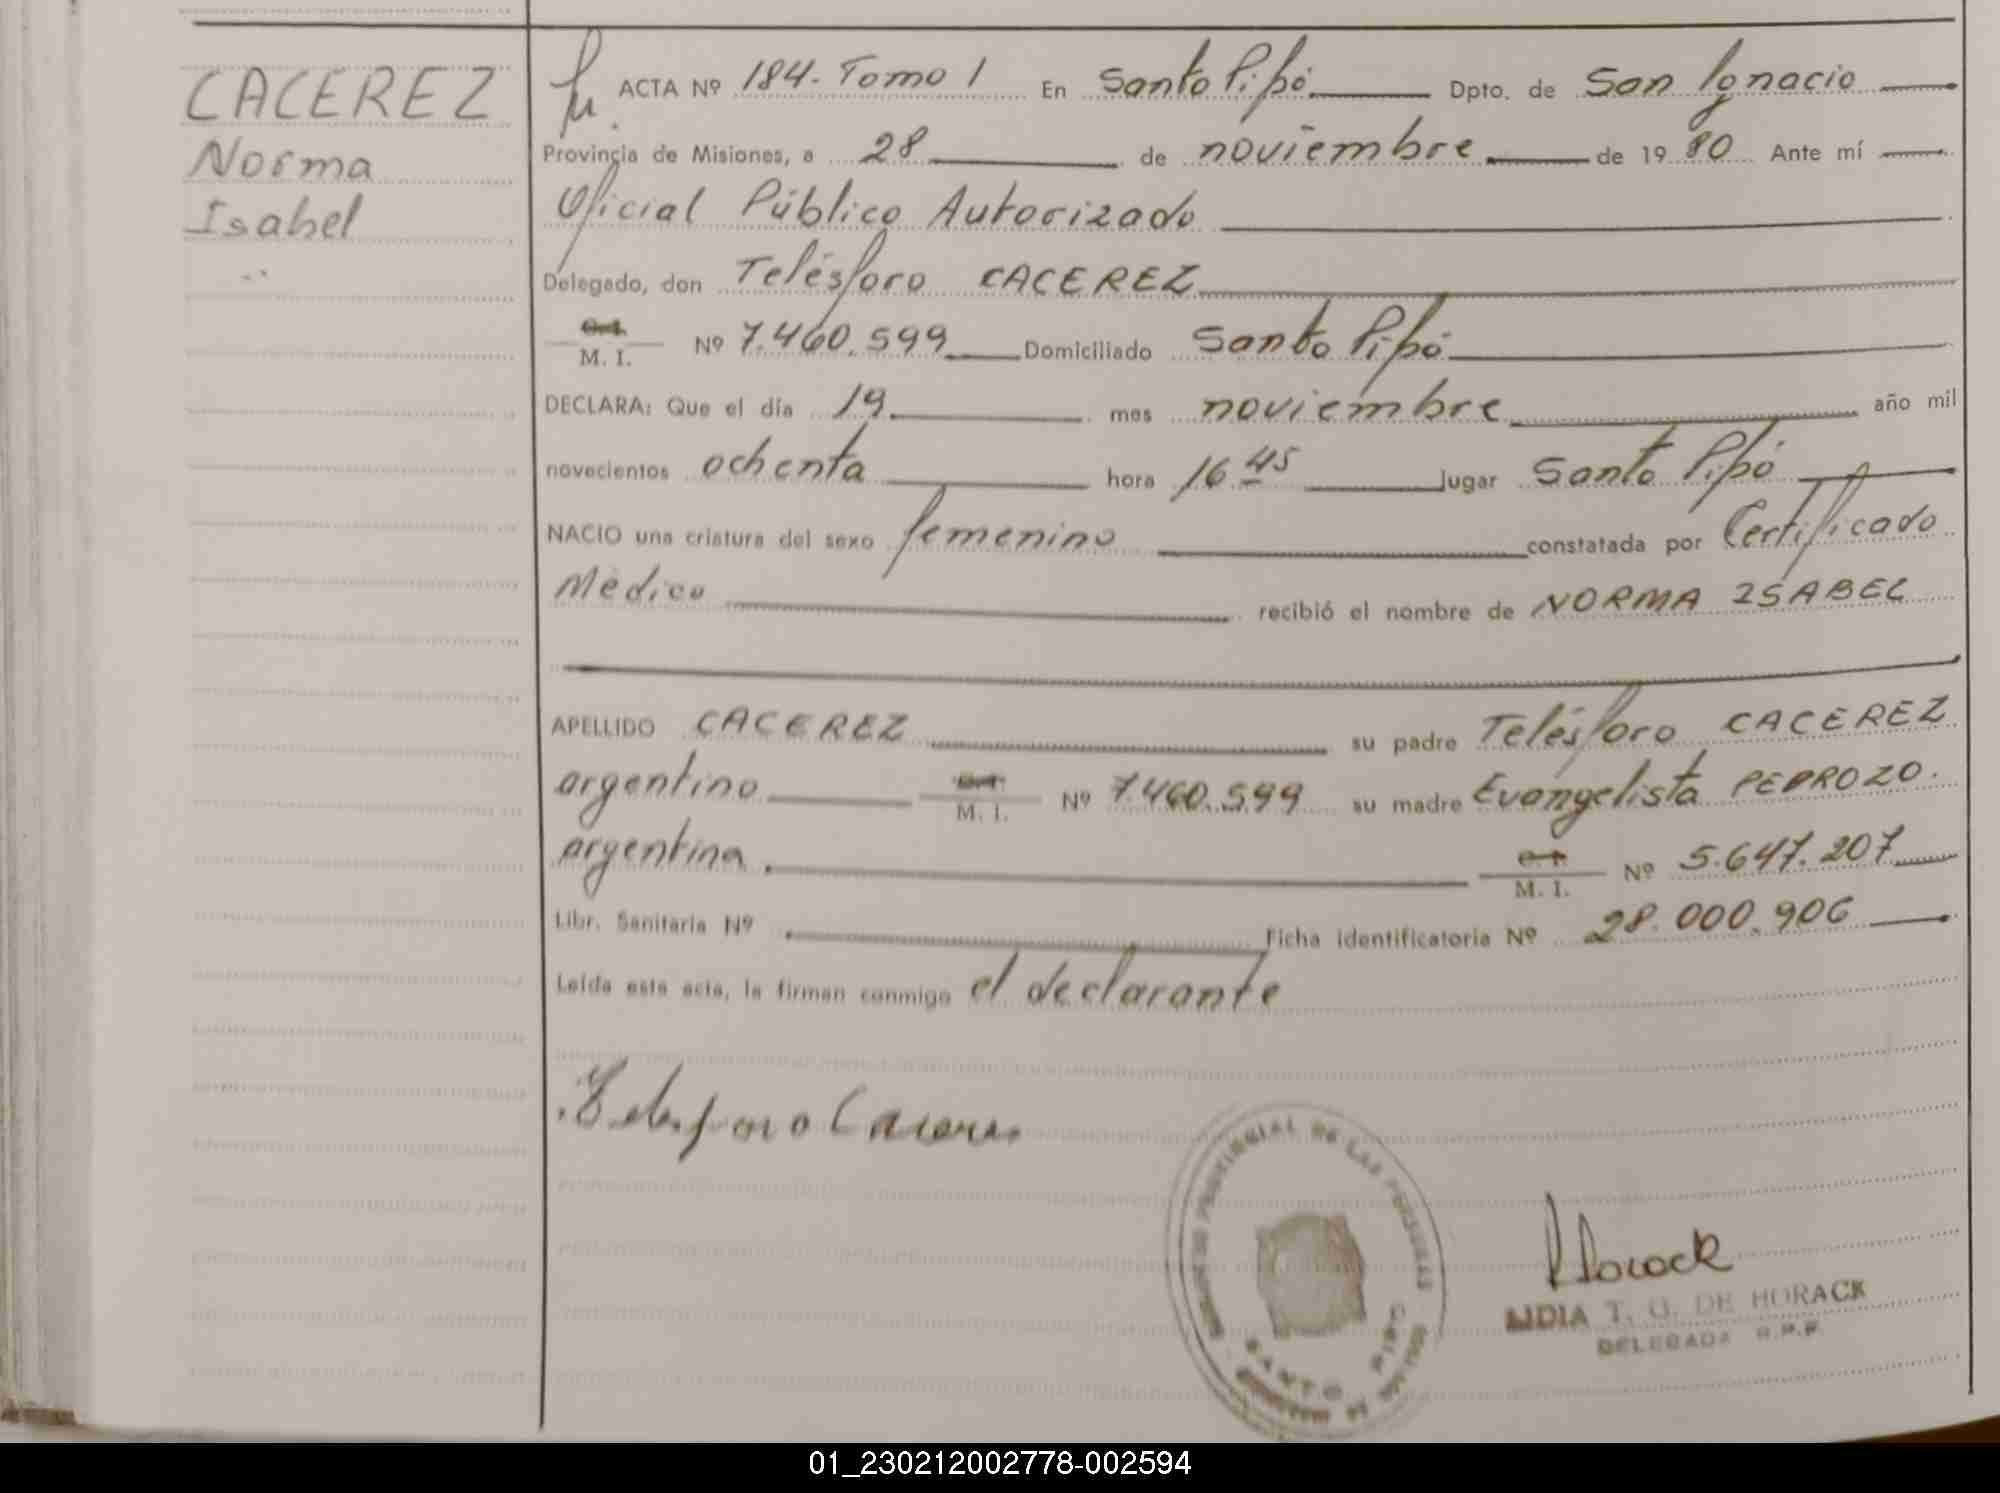 CACEREZ
Norma
Isabel
ACTA Nº 184. Tomo I En Santo Pipó Dpto. de San Ignacio
Provincia de Misiones, a 28 de noviembre de 1980 Ante mí
Oficial Público Autorizado
Delegado, don Telésforo CACEREZ
C.I.
M. I. Nº 7.460.599 Domiciliado Santo Pipó
DECLARA: Que el día 19 mes noviembre año mil
novecientos ochenta hora 16.45 lugar Santo Pipó
NACIO una criatura del sexo femenino constatada por Certificado
Médico recibió el nombre de NORMA ISABEL
APELLIDO CACEREZ su padre Telésforo CACEREZ
argentino M. I. Nº 7.460.599 su madre Evangelista PEDROZO.
argentina. M. I. Nº 5.647.207
Libr. Sanitaria Nº Ficha identificatoria Nº 28.000.906
Leída esta acta, la firman conmigo el declarante
Telesforo Caceres
PROVINCIAL DE LAS PERSONAS
SANTO PIPO
Horack
LIDIA T. G. DE HORACK
DELEGADA R.P.P.
01_230212002778-002594